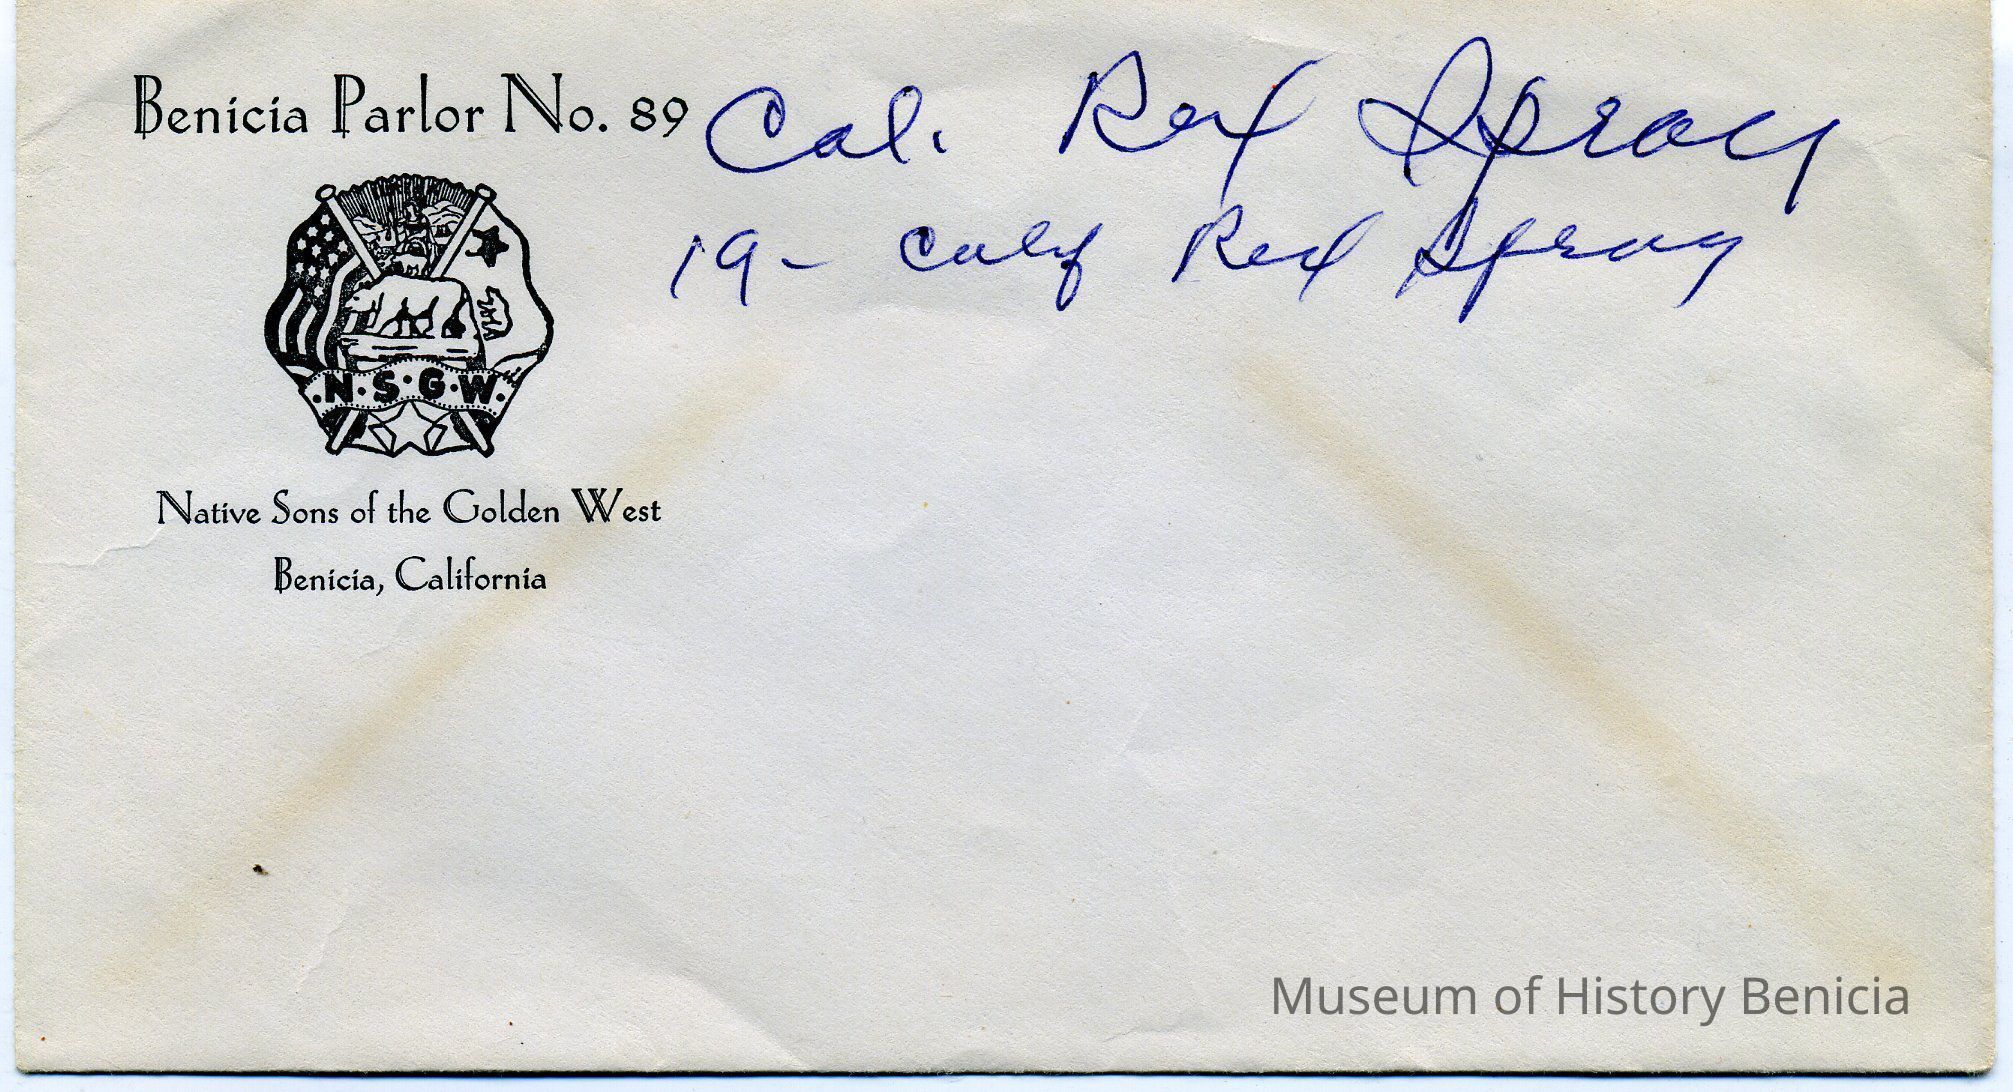 Benicia Parlor No. 89
Cal. Rex Spray
19- Calif Rex Spray
N·S·G·W.
Native Sons of the Golden West
Benicia, California
Museum of History Benicia